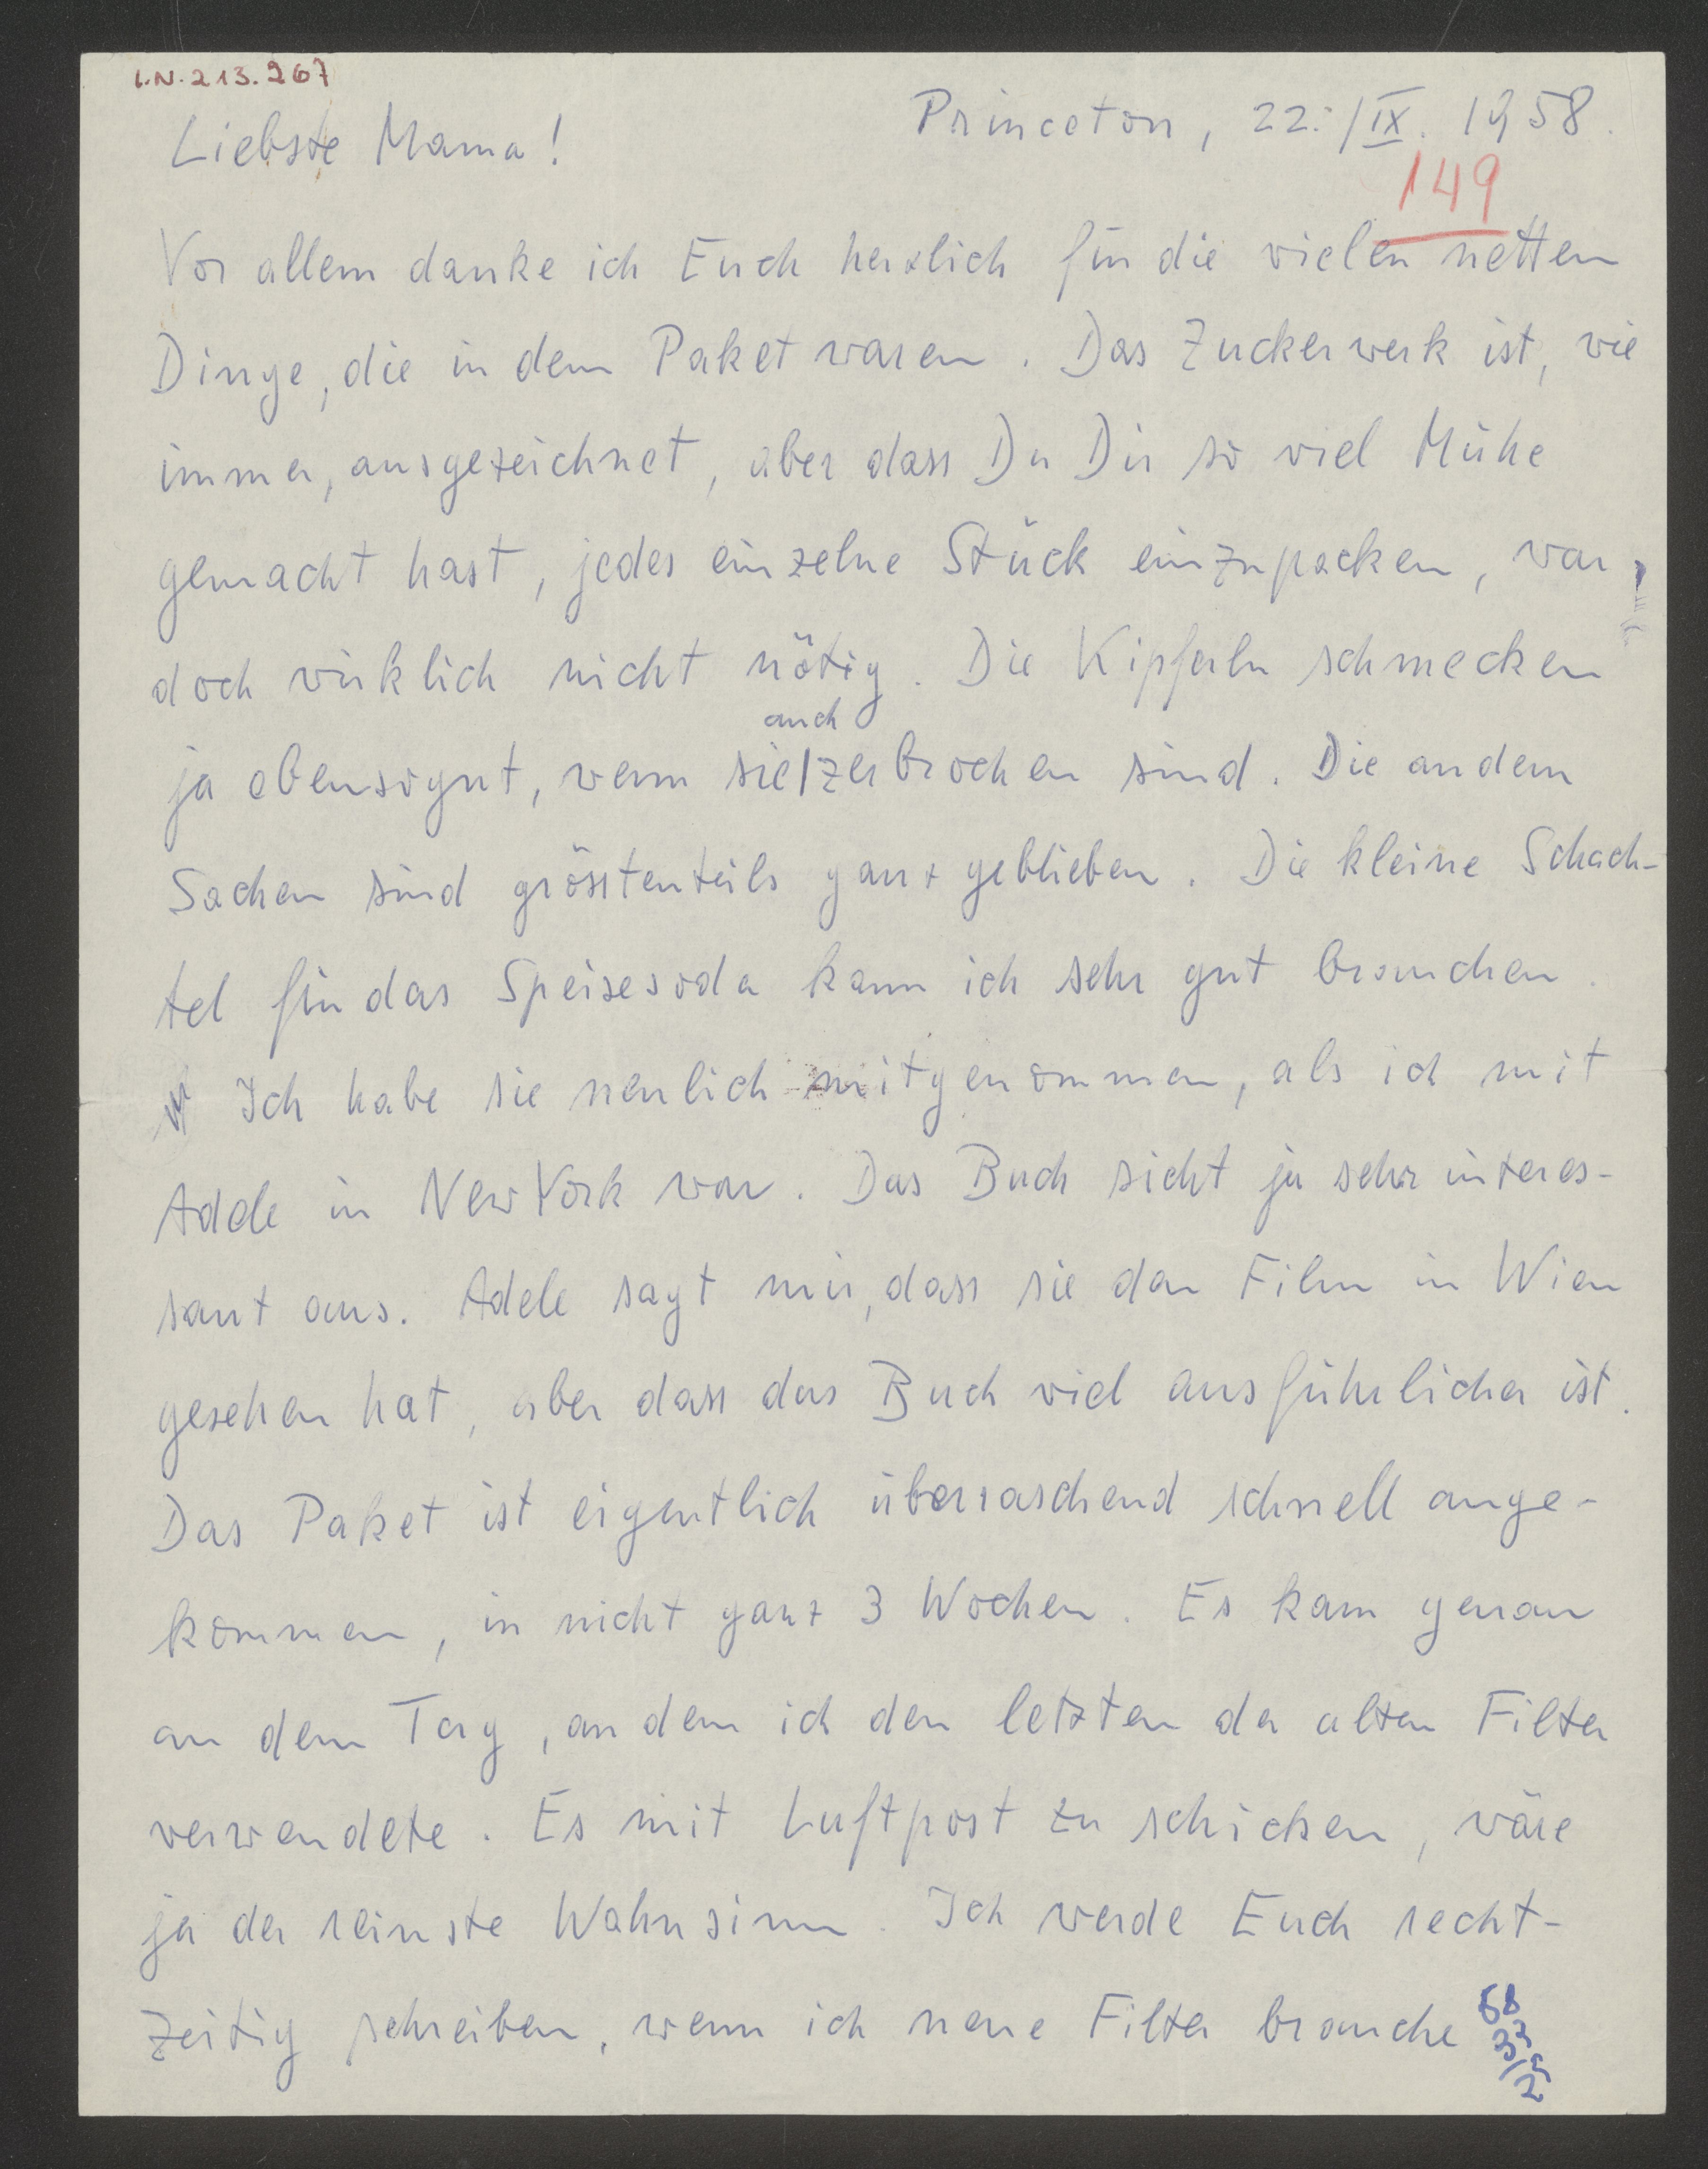 I.N. 213.267
Princeton, 22./IX. 1958.
Liebste Mama!
149
Vor allem danke ich Euch herzlich für die vielen netten
Dinge, die in dem Paket waren. Das Zuckerwerk ist, wie
immer, ausgezeichnet, aber dass Du Dir so viel Mühe
gemacht hast, jedes einzelne Stück einzupacken, war
doch wirklich nicht nötig. Die Kipferln schmecken
auch
ja ebensogut, wenn sie/zerbrochen sind. Die andern
Sachen sind grösstenteils ganz geblieben. Die kleine Schach-
tel für das Speisesoda kann ich sehr gut brauchen.
Ich habe sie neulich mitgenommen, als ich mit
Adele in New York war. Das Buch sieht ja sehr interes-
sant aus. Adele sagt mir, dass sie den Film in Wien
gesehen hat, aber dass das Buch viel ausführlicher ist.
Das Paket ist eigentlich überraschend schnell ange-
kommen, in nicht ganz 3 Wochen. Es kam genau
an dem Tag, an dem ich den letzten der alten Filter
verwendete. Es mit Luftpost zu schicken, wäre
ja der reinste Wahnsinn. Ich werde Euch recht-
zeitig schreiben, wenn ich neue Filter brauche